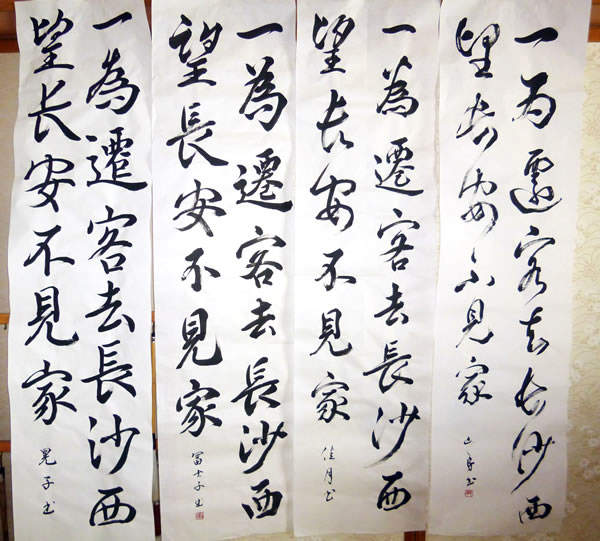 一為遷客去長沙西
望長安不見家
一為遷客去長沙西
望長安不見家 佳月書
一為遷客去長沙西
望長安不見家 冨士子書
一為遷客去長沙西
望長安不見家 晃子書